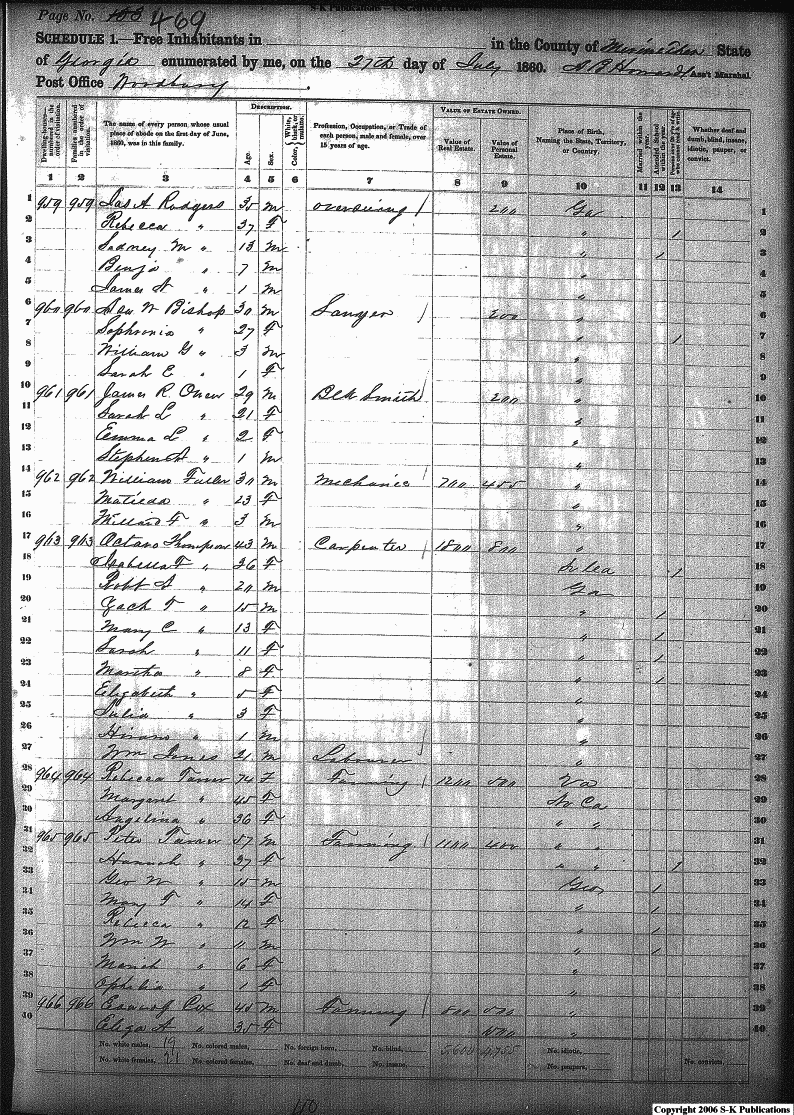 S-K Publications - USGenWeb Archives
Page No. 188 469
SCHEDULE 1.—Free Inhabitants in in the County of State
of Georgia enumerated by me, on the 27th day of July 1860. A B Howard Ass't Marshal
Post Office Woodbury
Dwelling-houses numbered in the order of visitation.
Families numbered in the order of visitation.
The name of every person whose usual place of abode on the first day of June, 1860, was in this family.
DESCRIPTION.
Age.
Sex.
Color, White, black, or mulatto.
Profession, Occupation, or Trade of each person, male and female, over 15 years of age.
VALUE OF ESTATE OWNED.
Value of Real Estate.
Value of Personal Estate.
Place of Birth, Naming the State, Territory, or Country.
Married within the year.
Attended School within the year.
Whether deaf and dumb, blind, insane, idiotic, pauper, or convict.
1 2 3 4 5 6 7 8 9 10 11 12 13 14
1 959 959 Jas A Rodgers 35 M overseeing 200 Ga 1
2 Rebecca " 37 F " 1 2
3 M " 13 M " 1 3
4 Benja " 7 M " 4
5 James " 1 M " 5
6 960 960 W Bishop 30 M Sawyer 200 " 6
7 Sophronia " 27 F " 1 7
8 William G " 3 M " 8
9 Sarah E " 1 F " 9
10 961 961 James R. Owen 29 M Blk Smith 200 " 10
11 Sarah L " 21 F " 11
12 Emma L " 2 F " 12
13 Stephen A " 1 M " 13
14 962 962 William Fuller 30 M Mechanic 700 455 " 14
15 Matilda " 23 F " 15
16 Willard F " 3 M " 16
17 963 963 Thompson 43 M Carpenter 1800 800 " 17
18 Isabella F " 36 F 1 18
19 Robt A " 20 M Ga 19
20 Zach T " 15 M " 1 20
21 Mary C " 13 F " 1 21
22 Sarah " 11 F " 1 22
23 Martha " 8 F " 1 23
24 Elizabeth " 5 F " 24
25 Julia " 3 F " 25
26 Hiram " 1 M " 26
27 Wm Jones 21 M Labourer " 27
28 964 964 Rebecca Turner 74 F Farming 1200 500 Va 28
29 Margaret " 45 F No Ca 29
30 Angelina " 36 F " " 30
31 965 965 Peter Turner 57 M Farming 1100 400 " " 31
32 Hannah " 37 F " " 1 32
33 Geo W " 15 M Geo 1 33
34 Mary F " 14 F " 1 34
35 Rebecca " 12 F " 1 35
36 Wm W " 11 M " 1 36
37 Mariah " 6 F " 37
38 Ophelia " 1 F " 38
39 966 966 Cox 45 M Farming 800 500 " 39
40 Eliza A " 35 F " 40
No. white males, 19 No. colored males, No. foreign born, No. blind, 5600 4755 No. idiotic,
No. white females, 21 No. colored females, No. deaf and dumb, No. insane, No. paupers, No. convicts,
Copyright 2006 S-K Publications